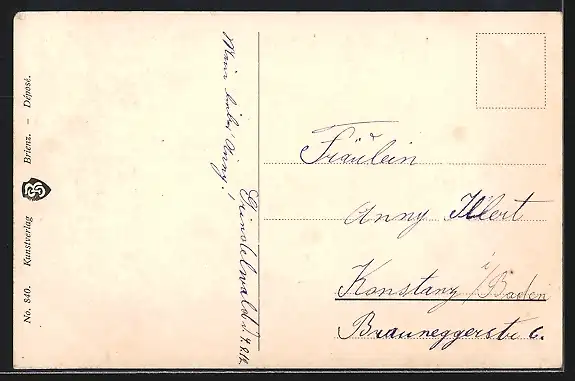 Mein lieber Anny!
Grindelwald d. 7.8.14.
Fräulein
Anny Illert
Konstanz i/Baden
Brauneggerstr 6.
No. 840. Kunstverlag Brienz. – Déposé.